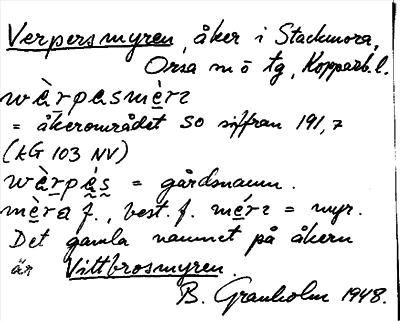 Verpersmyren, åker i Stackmora,
Orsa sn ö tg, Kopparb. l.
wὰrpəsmὲrɪ
= åkerområdet SO siffran 191,7
(kG 103 NV)
wὰrpəs = gårdsnamn.
mὲra f., best. f. mὲrɪ = myr.
Det gamla namnet på åkern
är Vittbrosmyren.
B. Granholm 1948.